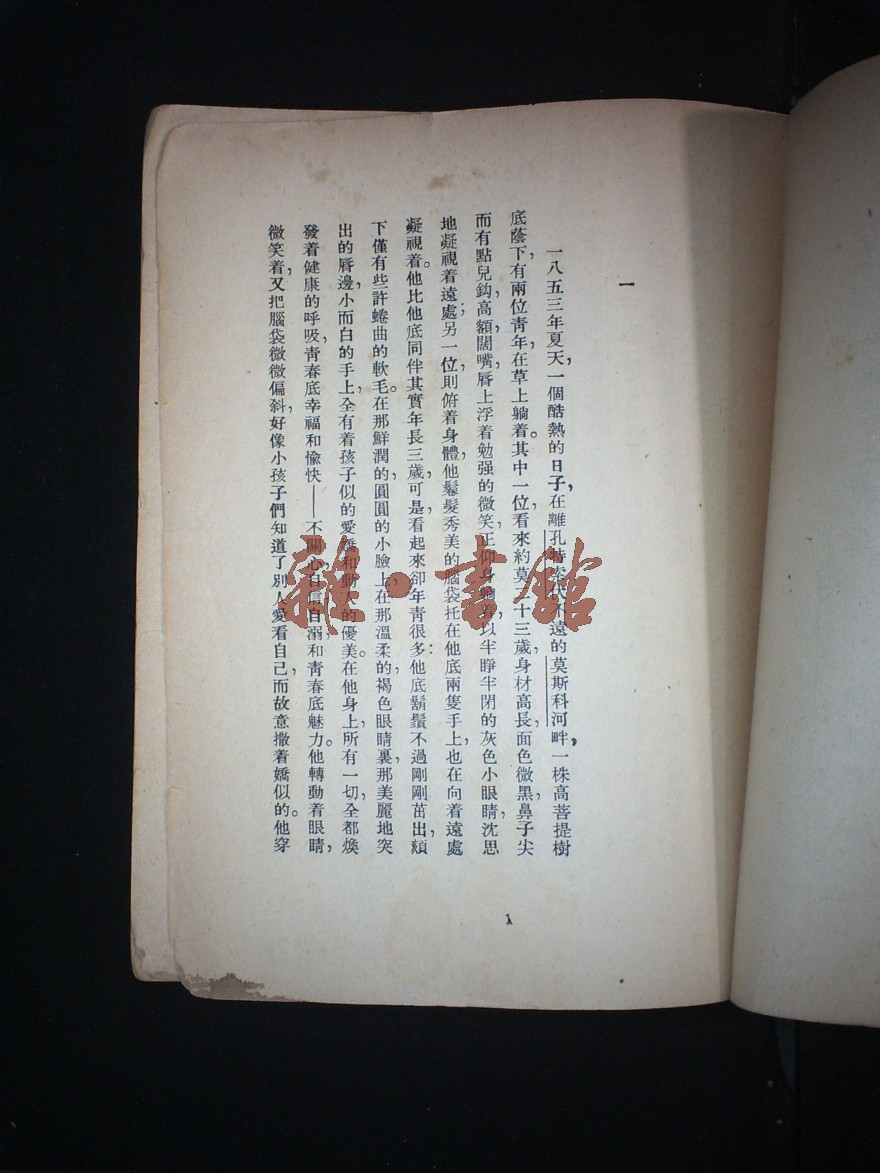 一
一八五三年夏天，一個酷熱的日子，在離孔特索代不遠的莫斯科河畔，一株高菩提樹
底蔭下，有兩位青年在草上躺着。其中一位，看來約莫二十三歲，身材高長，面色微黑，鼻子尖
而有點兒鈎，高額，闊嘴，脣上浮着勉强的微笑，正仰身躺着，以半睜半閉的灰色小眼睛，沈思
地凝視着遠處；另一位，則俯着身體，他鬈髮秀美的腦袋托在他底兩隻手上，也在向着遠處
凝視着。他比他底同伴其實年長三歲，可是，看起來卻年青很多：他底鬍鬚不過剛剛茁出，頦
下僅有些許蜷曲的軟毛。在那鮮潤的圓圓的小臉上，在那溫柔的褐色眼睛裏，那美麗地突
出的脣邊，小而白的手上，全有着孩子似的愛嬌和動人的優美。在他身上，所有一切，全都煥
發着健康的呼吸，青春底幸福和愉快——不關心，自信，自溺，和青春底魅力。他轉動着眼睛，
微笑着，又把腦袋微微偏斜，好像小孩子們知道了別人愛看自己，而故意撒着嬌似的。他穿
1
雜·書館